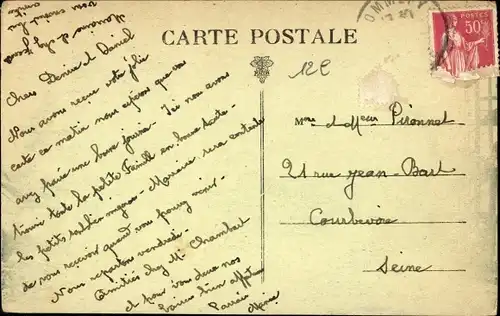 CARTE POSTALE
12€
50c
Chers Denise et Daniel
Nous avons reçue votre jolie
carte ce matin nous espérons que vous
avez passé une bonne journée. Ici nous avons
trouvé toute la petite famille en bonne santé
les petits sont bien mignons. Marraine sera contente
de vous recevoir quand vous pourrez venir.
Nous repartons vendredi.
Amitiés de Mr Chambart
et pour vous deux nos
baisers bien affectueux
Mme et Monsieur Pironnet
21 rue Jean Bart
Courbevoie
Seine